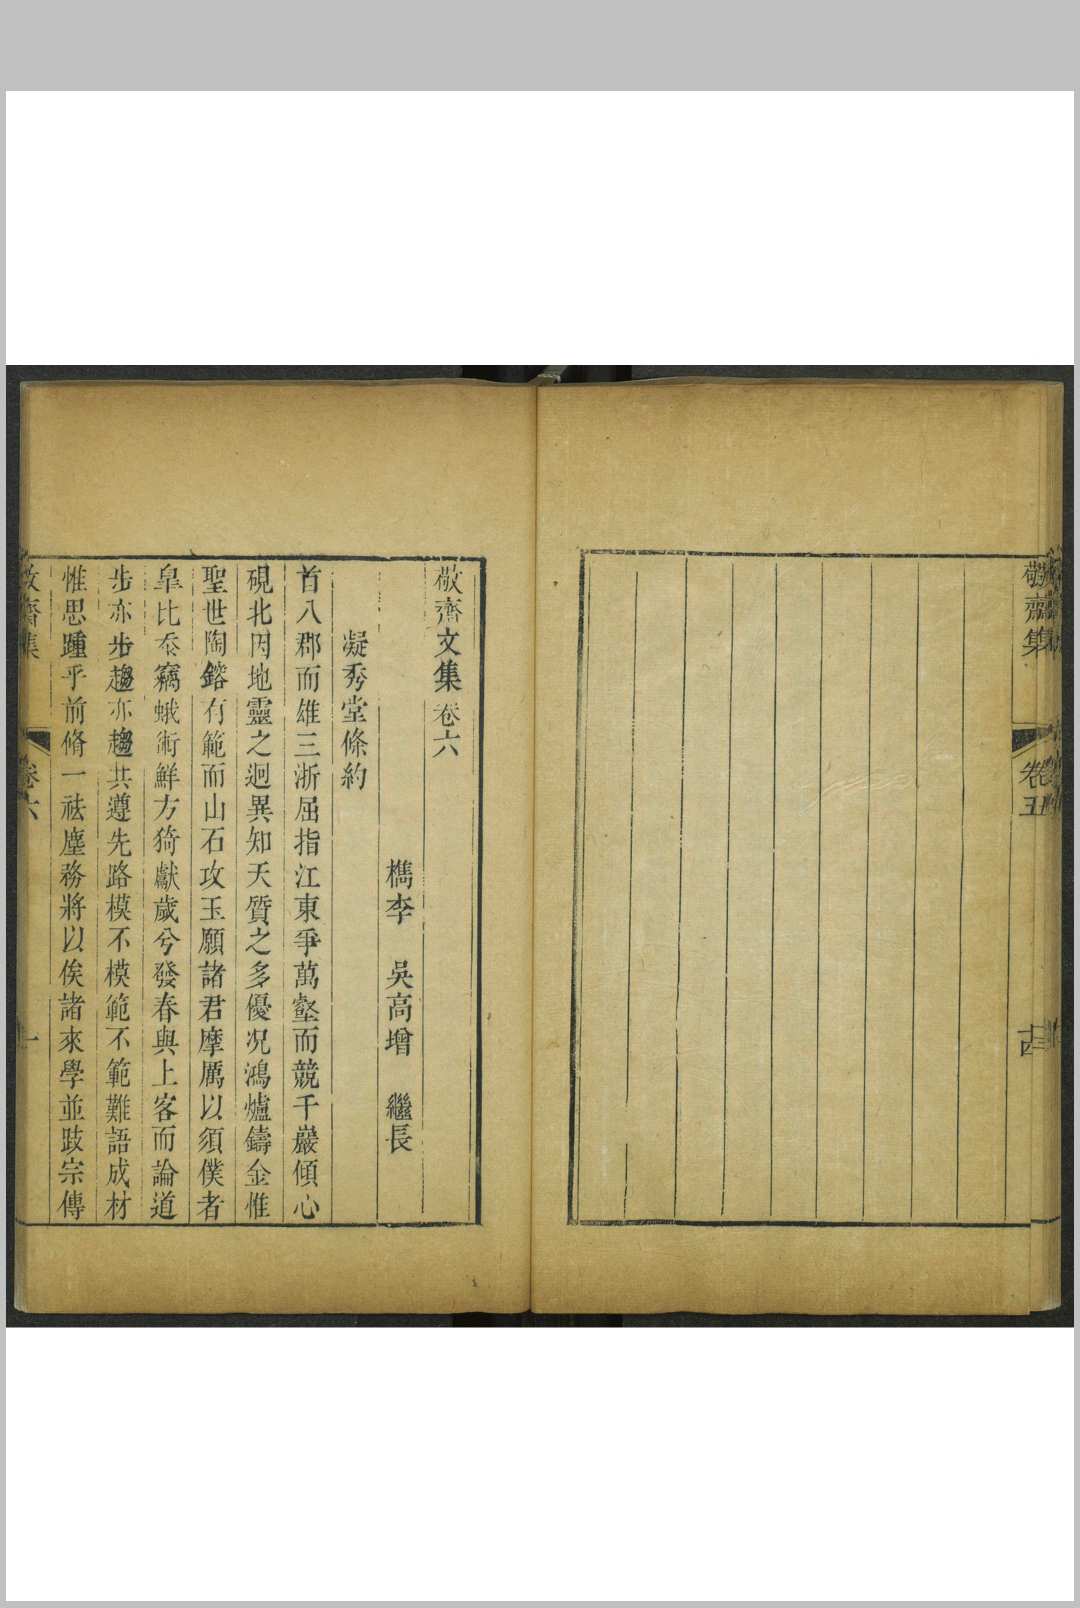 敬齋集
卷五
十四
敬齋文集卷六
檇李　吳高增　繼長
凝秀堂條約
首八郡而雄三浙屈指江東爭萬壑而競千巖傾心
硯北因地靈之迥異知天質之多優况鴻爐鑄金惟
聖世陶鎔有範而山石攻玉願諸君摩厲以須僕者
臯比忝竊蛾術鮮方猗獻歲兮發春與上客而論道
步亦步趨亦趨共遵先路模不模範不範難語成材
惟思踵乎前脩一祛塵務將以俟諸來學並跂宗傳
敬齋集
卷六
一